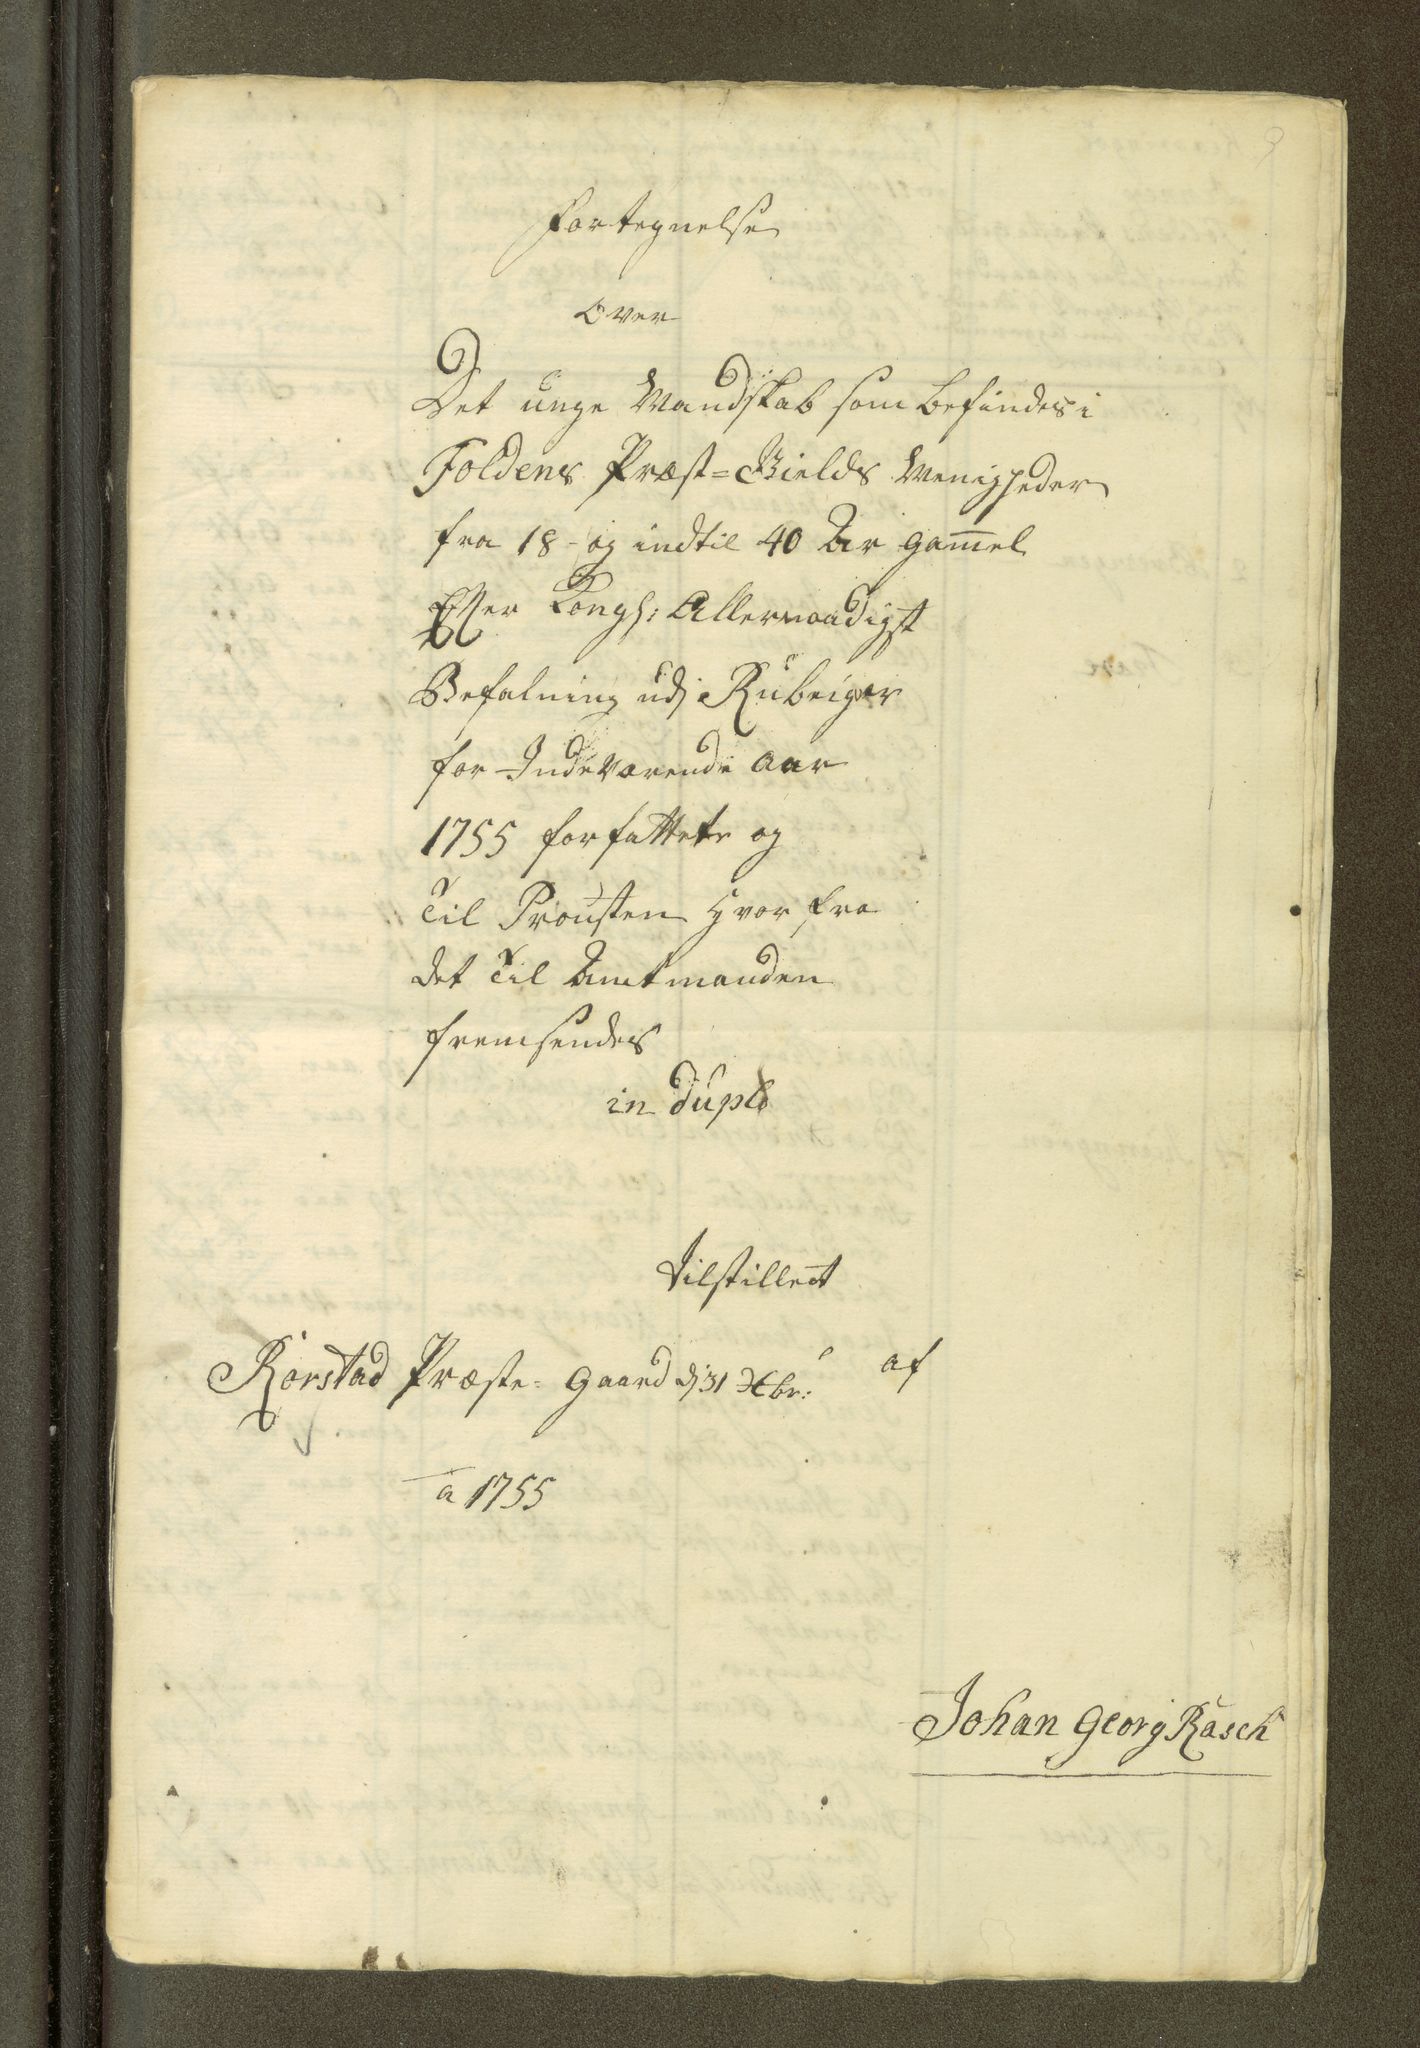 Fortegnelse
Over
Det unge Mandskab som befindes i
Foldens Præst=Gields Menigheder
fra 18- og indtil 40 Aar gam̅el
Efter Kongl: Allernaadigst
Befalning udj Rubriqver
for Indeværende Aar
1755 forfattet og
Til Prousten hvor fra
det Til Amtmanden
fremsendes
in duplo
Tilstillet
Rørstad Præste= Gaard dj 31 Xbr: af
a 1755
Johan Georg Rasch